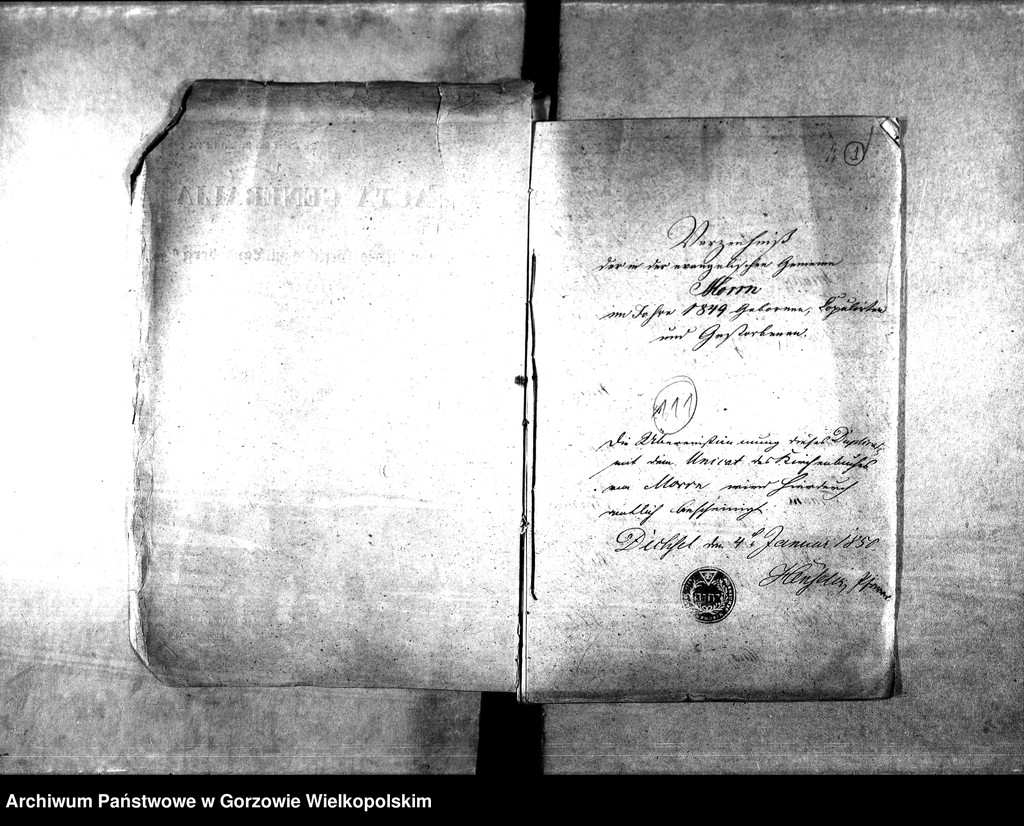 ACTA GENERALIA
1
Verzeichniß
der in der evangelischen Gemeine
Morrn
im Jahre 1849 Geborenen, Copulirten
und Gestorbenen.
111
Die Übereinstimmung dieses Duplicats
mit dem Unicat des Kirchenbuches
von Morrn wird hierdurch
amtlich bescheinigt.
Dechsel den 4t Januar 1850
Pfarrer
Archiwum Państwowe w Gorzowie Wielkopolskim